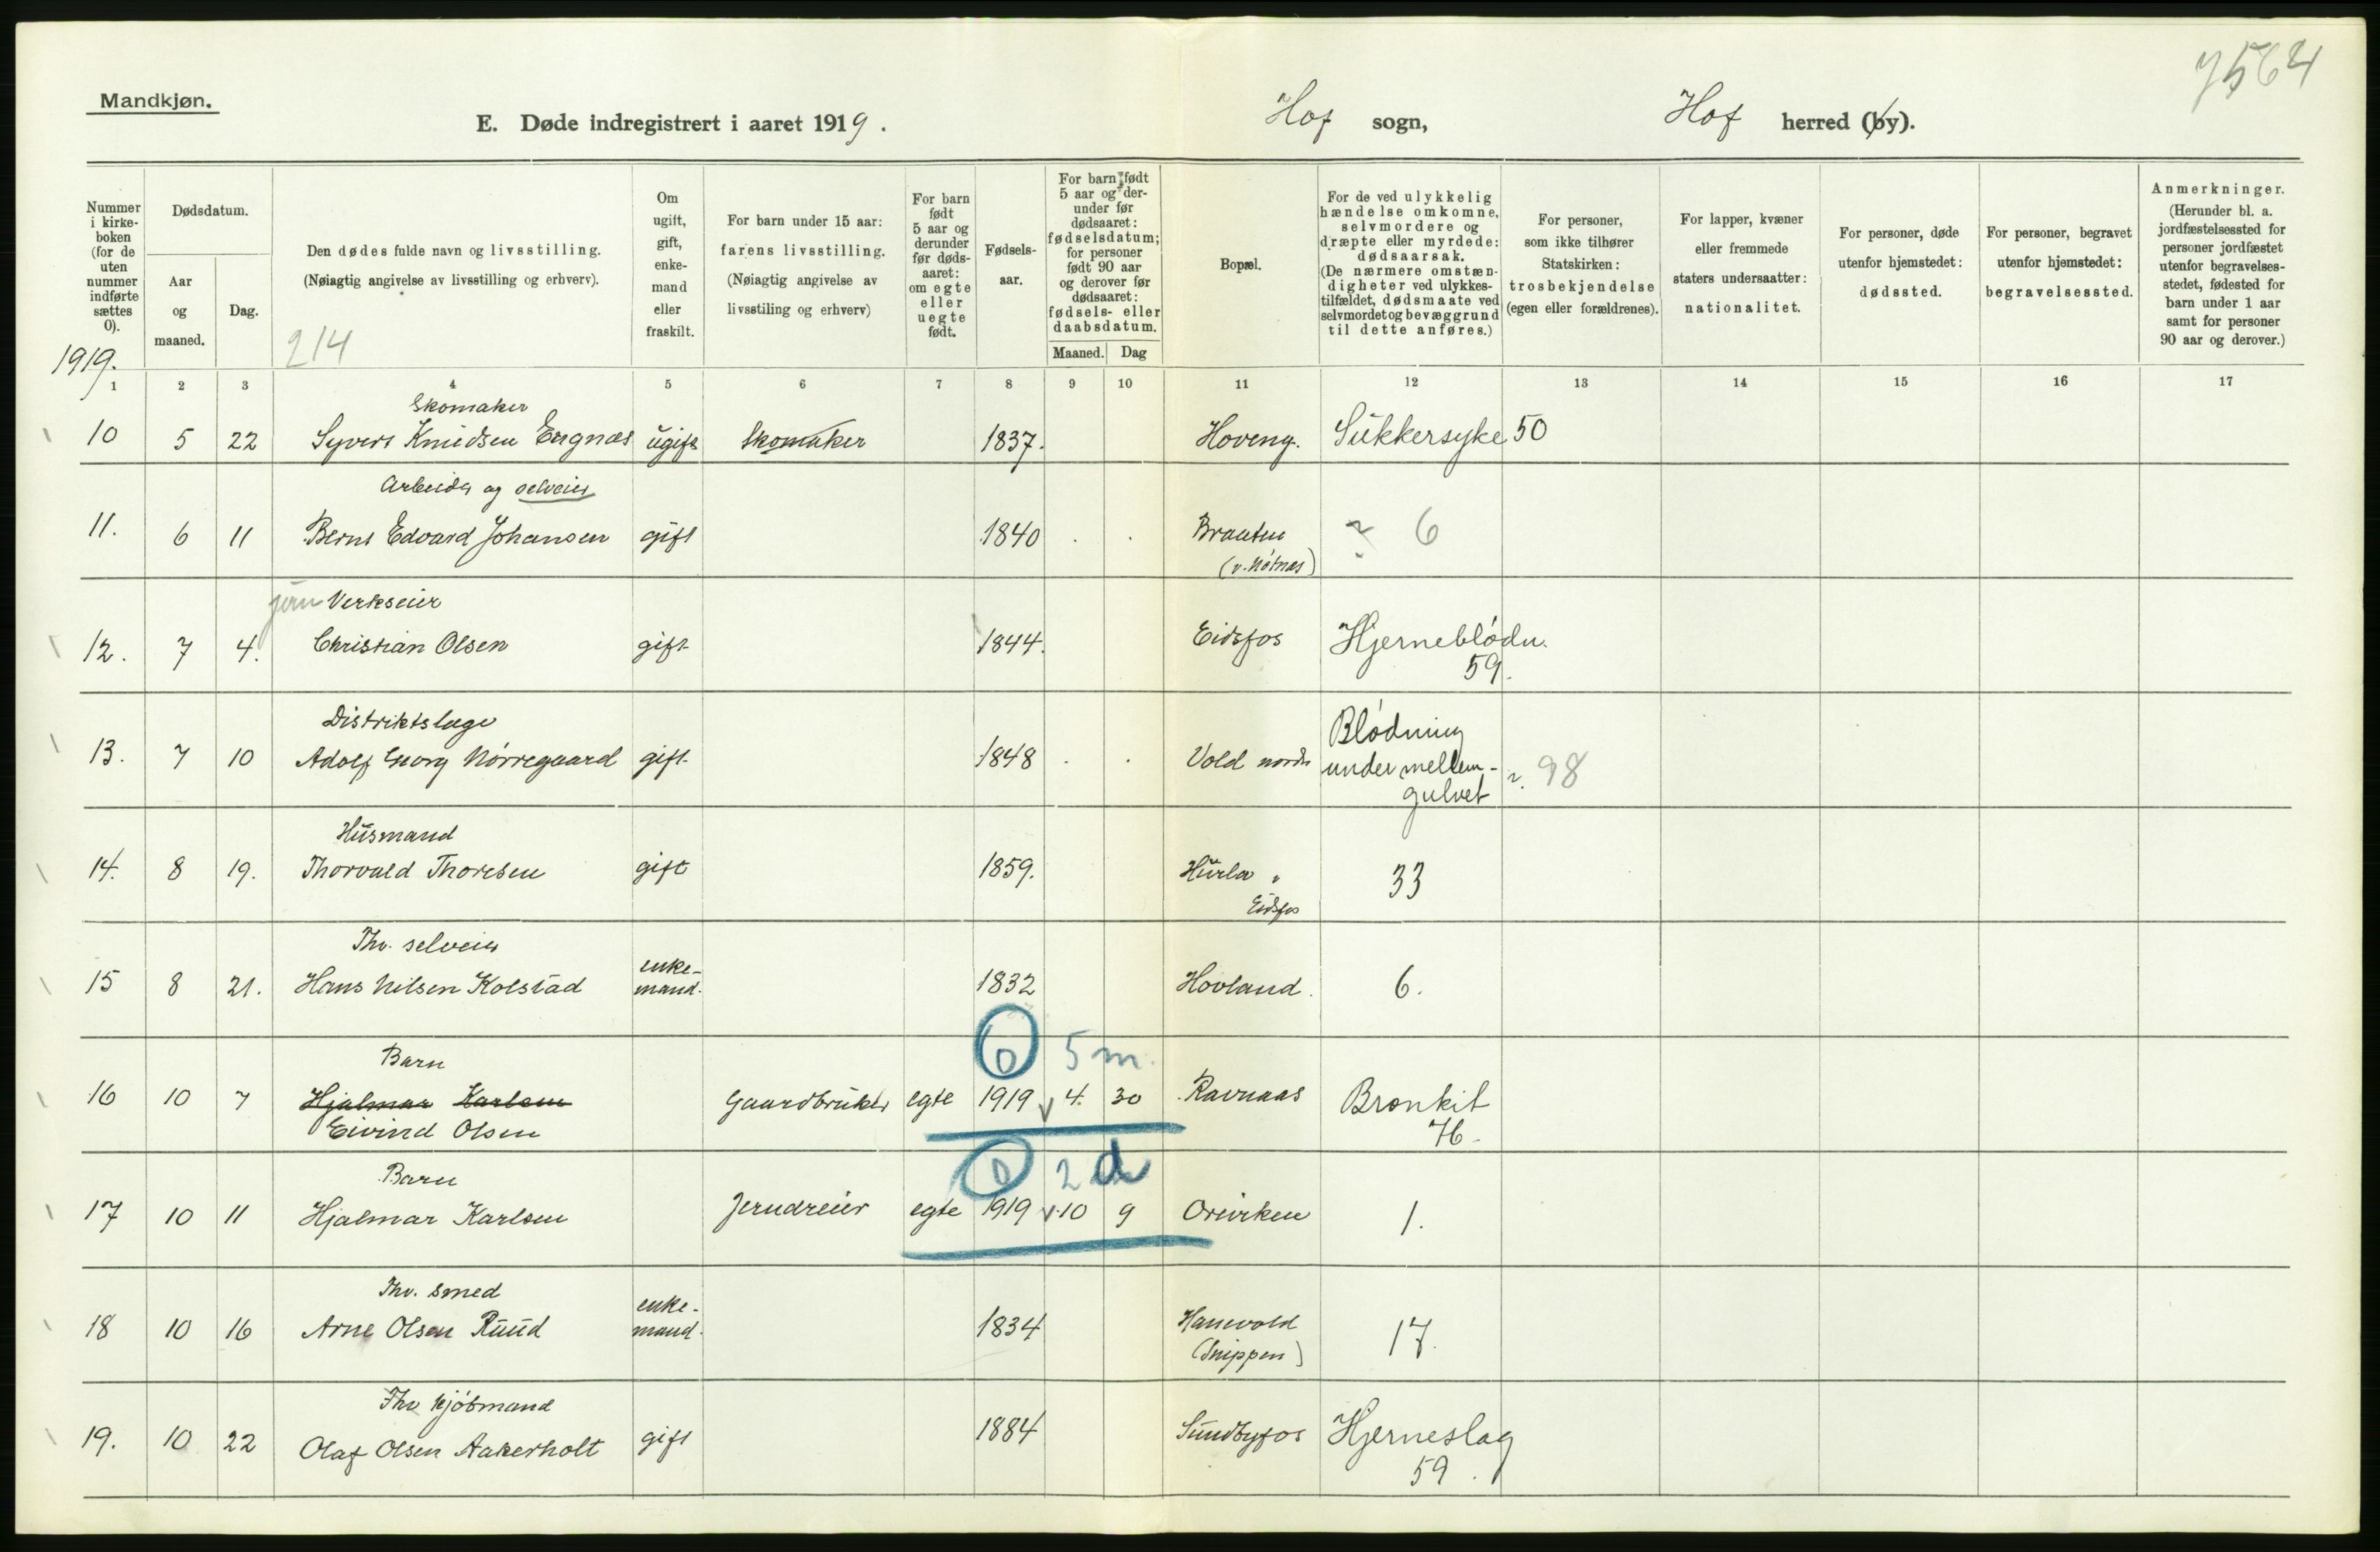 7564
Mandkjøn.
E. Døde indregistrert i aaret 1919.
Hof sogn,
Hof herred (by).
Nummer i kirke-boken (for de uten nummer indførte sættes 0).
Dødsdatum.
Aar og maaned.
Dag.
Den dødes fulde navn og livsstilling.
(Nøiagtig angivelse av livsstilling og erhverv).
Om ugift, gift, enke-mand eller fraskilt.
For barn under 15 aar: farens livsstilling.
(Nøiagtig angivelse av livsstiling og erhverv)
For barn født 5 aar og derunder før døds-aaret: om egte eller uegte født.
Fødsels-aar.
For barn født 5 aar og der-under før dødsaaret: fødselsdatum; for personer født 90 aar og derover før dødsaaret: fødsels- eller daabsdatum.
Maaned. Dag
Bopæl.
For de ved ulykkelig hændelse omkomne, selvmordere og dræpte eller myrdede: dødsaarsak.
(De nærmere omstæn-digheter ved ulykkes-tilfældet, dødsmaate ved selvmordet og bevæggrund til dette anføres.)
For personer, som ikke tilhører Statskirken: trosbekjendelse (egen eller forældrenes).
For lapper, kvæner eller fremmede staters undersaatter: nationalitet.
For personer, døde utenfor hjemstedet: dødssted.
For personer, begravet utenfor hjemstedet: begravelsessted.
Anmerkninger.
(Herunder bl. a. jordfæstelsessted for personer jordfæstet utenfor begravelses-stedet, fødested for barn under 1 aar samt for personer 90 aar og derover.)
1919.
214
1 2 3 4 5 6 7 8 9 10 11 12 13 14 15 16 17
Skomaker
10 5 22 Syvert Knudsen Engnæs ugift Skomaker 1837. Hoveng. Sukkersyke 50
Arbeider og selveier
11. 6 11 Bernt Edvard Johansen gift 1840 Braaten ? 6
(v. Nötnæs)
jern Verkseier
12. 7 4. Christian Olsen gift 1844. Eidsfos Hjerneblödn.
59.
Distriktslæge Blödning
13. 7 10 Adolf Georg Nörregaard gift 1848 Vold nordr under mellem- ?. 98
gulvet
Husmand
14. 8 19. Thorvald Thoresen gift 1859. Hurla 33
Eidsfos
Fhv. selveier
15 8 21. Hans Nilsen Kolstad enke-mand. 1832 Hovland. 6.
0 5 m.
Barn
16 10 7 Hjalmar Karlsen Gaardbruker egte 1919 4. 30 Ravnaas Bronkit
Eivind Olsen 76.
0 2 d
Barn
17 10 11 Hjalmar Karlsen Jerndreier egte 1919 10 9 1.
Fhv. smed
18 10 16 Arne Olsen Ruud enke-mand. 1834 Hanevold 17.
(Snippen)
Fhv kjöbmand
19. 10 22 Olaf Olsen Aakerholt gift 1884 Sundbyfos Hjerneslag
59.